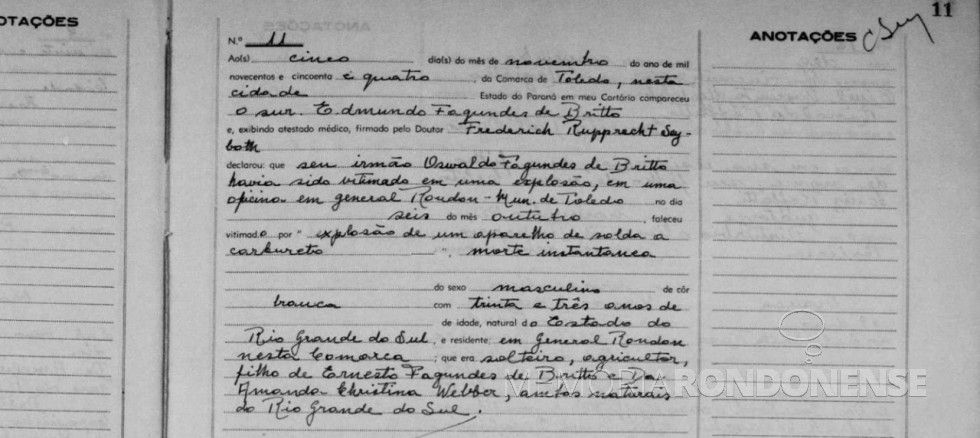 OTAÇÕES
11
ANOTAÇÕES
N.º 11
Ao(s) cinco dia(s) do mês de novembro do ano de mil
novecentos e cincoenta e quatro, da Comarca de Toledo, nesta
cidade Estado do Paraná em meu Cartório compareceu
o snr. Edmundo Fagundes de Britto
e, exibindo atestado médico, firmado pelo Doutor Frederich Rupprecht Sey-
both
declarou: que seu irmão Oswaldo Fagundes de Britto
havia sido vitimado em uma explosão, em uma
oficina em general Rondon - Mun. de Toledo no dia
seis do mês outubro, faleceu
vitimado por " explosão de um aparelho de solda a
carbureto ", morte instantanea
do sexo masculino de côr
branca com trinta e três anos de
de idade, natural do Estado do
Rio Grande do Sul, e residente: em General Rondon
nesta Comarca; que era solteiro, agricultor,
filho de Ernesto Fagundes de Britto e Da.
Amanda Christina Webber, ambos naturais
do Rio Grande do Sul.
MEMÓRIARONDONENSE